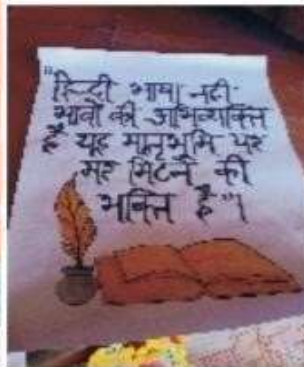 "हिन्दी भाषा नहीं
भावों की अभिव्यक्ति
है यह मातृभूमि पर
मर मिटने की
भक्ति है"।